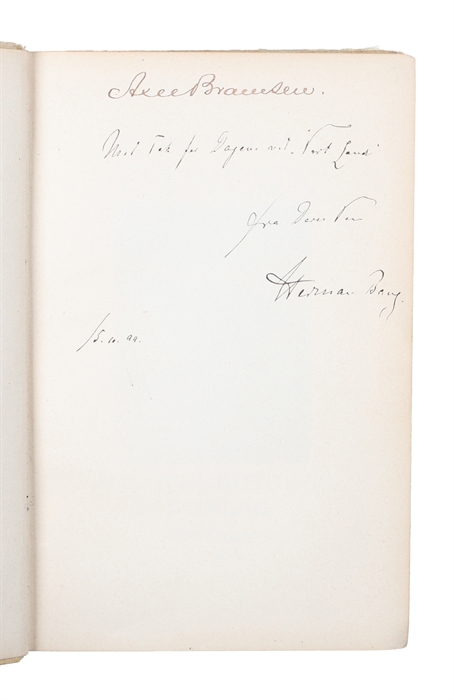 Axel Bramsen.
Med Tak for Dagene ved "Vort Land"
fra Deres Ven
Herman Bang.